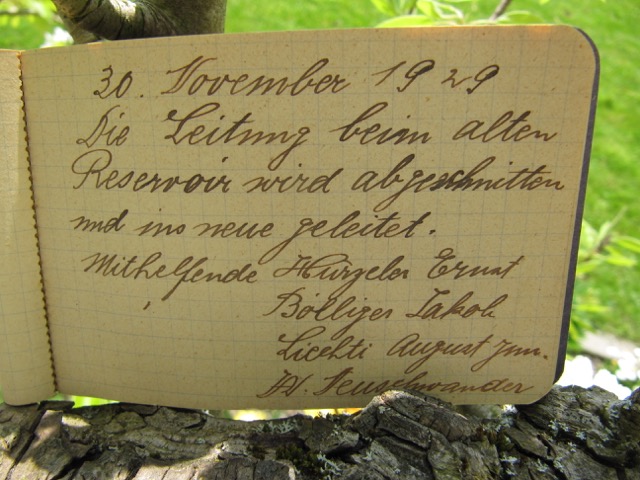 30. November 1929
Die Leitung beim alten
Reservoir wird abgeschnitten
und ins neue geleitet.
Mithelfende Hürzeler Ernst
Bolliger Jakob
Liechti August jun.
W. Neuschwander